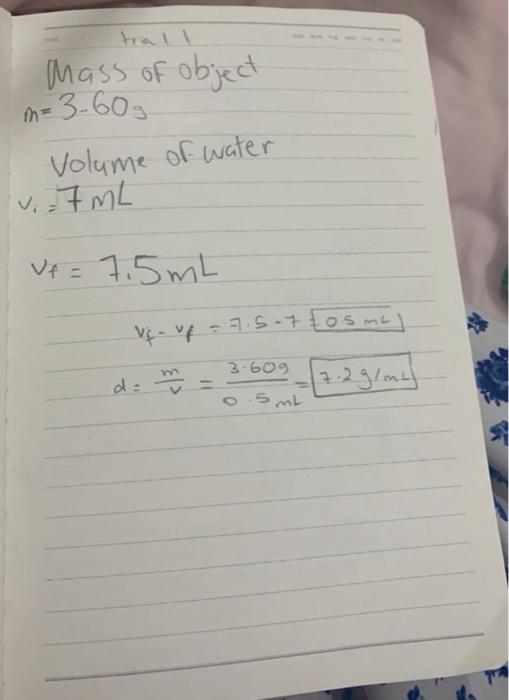 trial 1
Mass of object
m= 3.60g
Volume of water
Vi = 7 mL
Vf = 7.5mL
Vf - Vf = 7.5 - 7 = 0.5 mL
d = m/v = 3.60g/0.5 mL = 7.2 g/mL